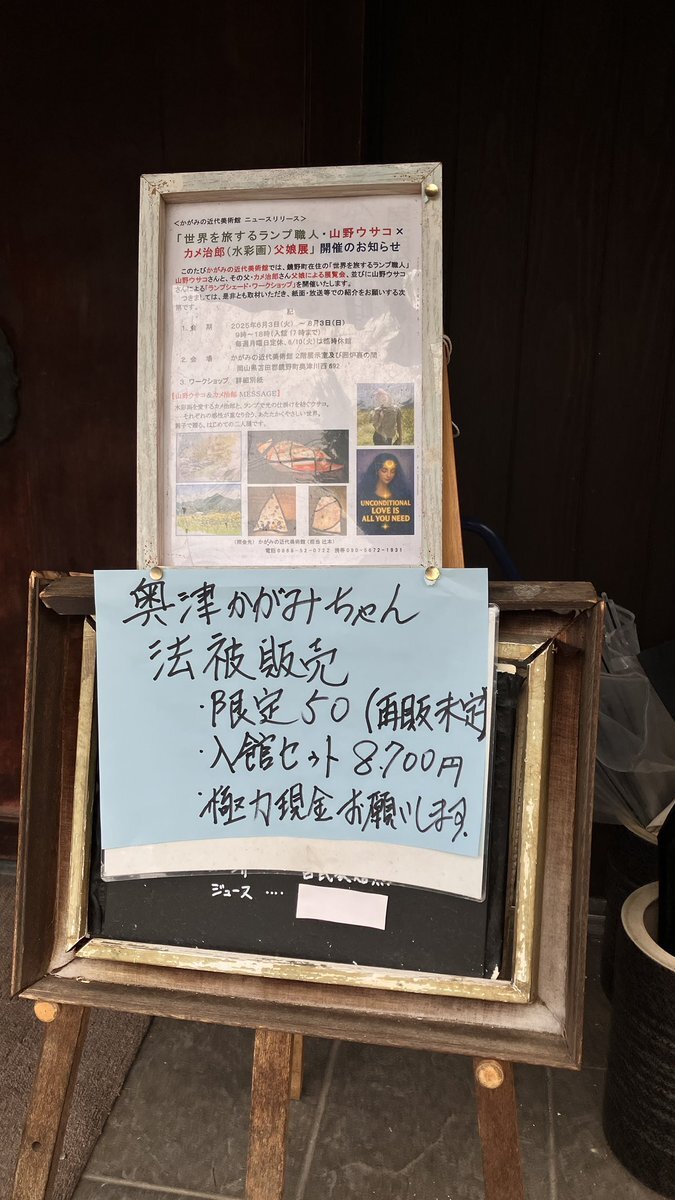 <かがみの近代美術館 ニュースリリース>
「世界を旅するランプ職人・山野ウサコ×
カメ治郎(水彩画)父娘展」開催のお知らせ
このたびかがみの近代美術館では、鏡野町在住の「世界を旅するランプ職人」
山野ウサコさんと、その父・カメ治郎さん父娘による展覧会、並びに山野ウサコ
さんによる「ランプシェード・ワークショップ」を開催いたします。
つきましては、是非とも取材いただき、紙面・放送等での紹介をお願いする次
第です。
記
1. 会 期 2025年6月3日(火) ~ 8月3日(日)
9時~18時(入館17時まで)
毎週月曜日定休、6/10(火)は臨時休館
2. 会 場 かがみの近代美術館 2階展示室及び囲炉裏の間
岡山県苫田郡鏡野町奥津川西692
3. ワークショップ 詳細別紙
【山野ウサコ&カメ治郎 MESSAGE】
水彩画を愛するカメ治郎と、ランプで光の仕掛けを紡ぐウサコ。
それぞれの感性が重なり合う、あたたかくやさしい世界。
親子で贈る、はじめての二人展です。
UNCONDITIONAL
LOVE IS
ALL YOU NEED
(照会先) かがみの近代美術館 (担当 辻本)
電話0868-52-0722 携帯090-5672-1931
奥津かがみちゃん
法被販売
・限定50(再販未定)
・入館セット 8.700円
・極力現金お願いします.
ジュース ‥‥